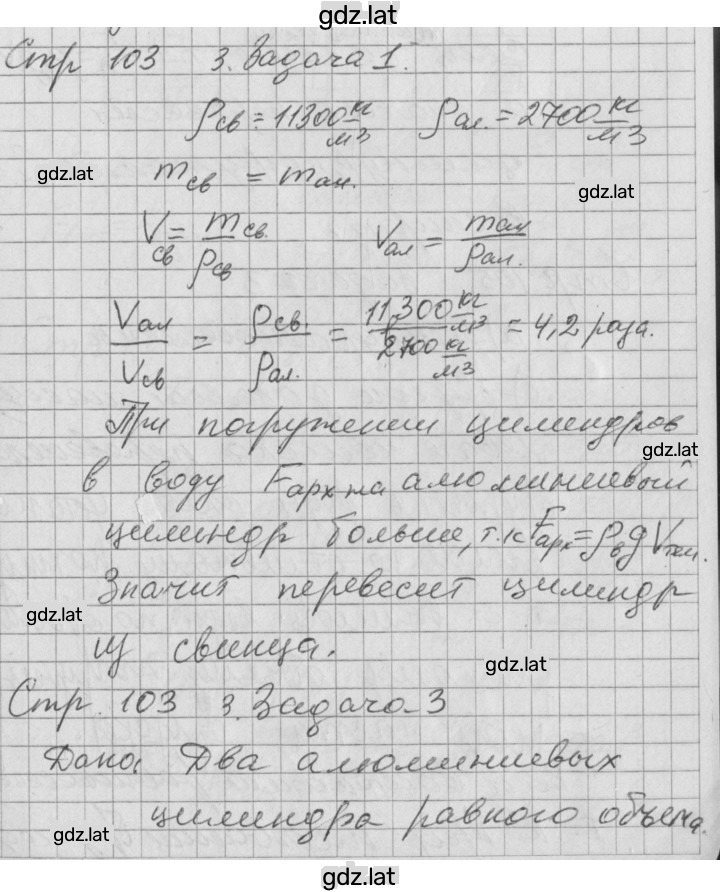 gdz.lat
Стр 103 3. Задача 1.
ρсв = 11300 кг/м3 ρал. = 2700 кг/м3
gdz.lat
mсв = mал.
gdz.lat
Vсв = mсв./ρсв Vал = mал/ρал.
Vал/Vсв = ρсв./ρал. = 11300 кг/м3 / 2700 кг/м3 = 4,2 раза.
При погружении цилиндров
gdz.lat
в воду Fарх на алюминиевый
цилиндр больше, т.к Fарх = ρв g Vтел.
Значит перевесит цилиндр
gdz.lat
из свинца.
gdz.lat
Стр. 103 3. Задача 3
Дано: Два алюминиевых
цилиндра равного объема.
gdz.lat
gdz.lat